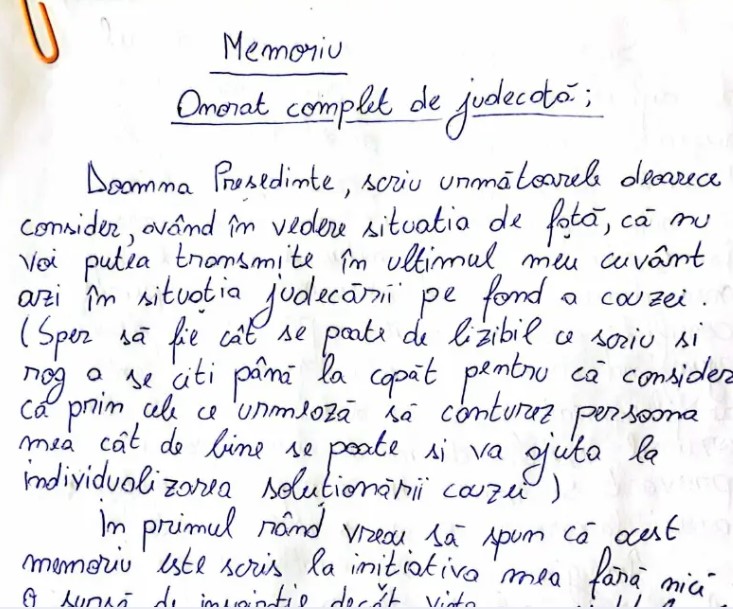 Memoriu
Onorat complet de judecată;
Doamna Presedinte, scriu următoarele deoarece
consider, având în vedere situatia de față, că nu
voi putea transmite în ultimul meu cuvânt
azi în situația judecării pe fond a cauzei.
(Sper să fie cât se poate de lizibil ce scriu si
rog a se citi până la capăt pentru că consider
că prin cele ce urmează să conturez persoana
mea cât de bine se poate si va ajuta la
individualizarea soluționării cauzei)
În primul rând vreau să spun că acest
memoriu este scris la initiativa mea fără nici
o sursă de inspiratie decât viata